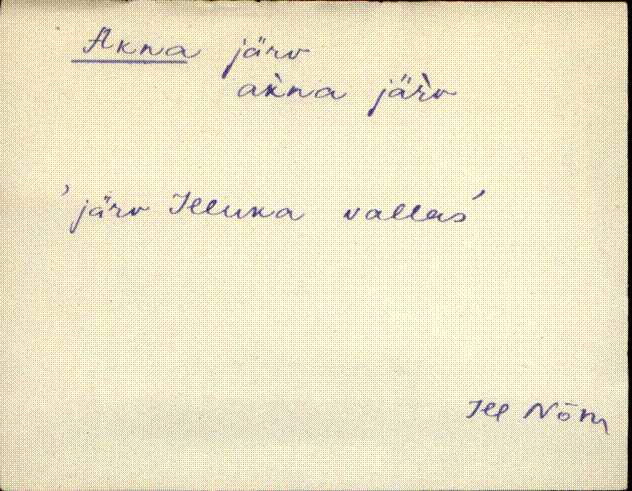 Akna järv
ak̀na jär̀v
'järv Illuka vallas'
Ill Nõm